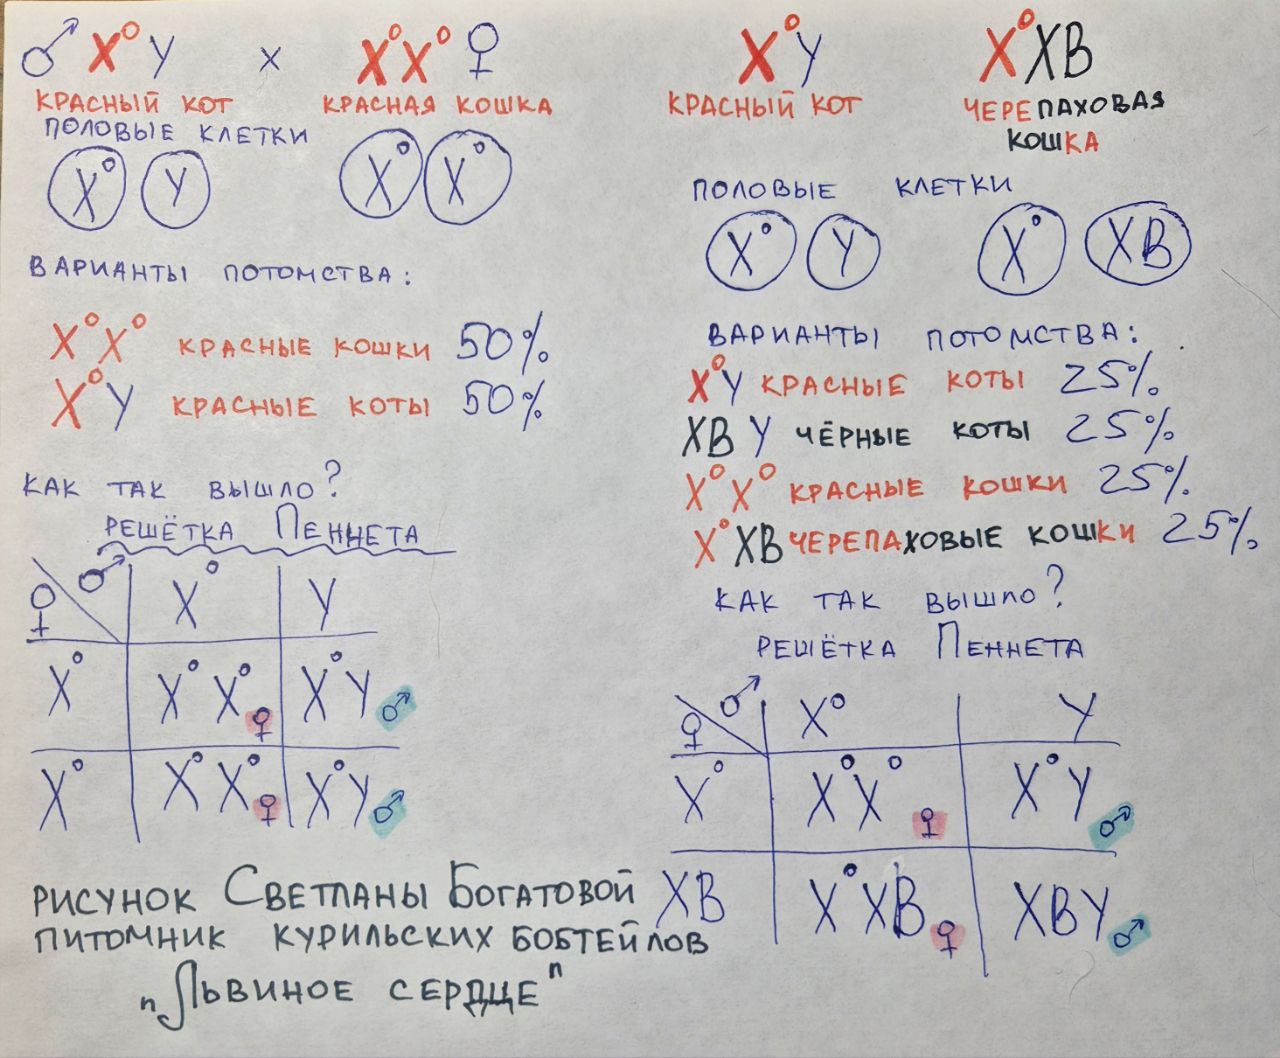 ♂ X° Y x X° X° ♀
КРАСНЫЙ КОТ КРАСНАЯ КОШКА
ПОЛОВЫЕ КЛЕТКИ
X° Y X° X°
ВАРИАНТЫ ПОТОМСТВА:
X° X° КРАСНЫЕ КОШКИ 50%
X° Y КРАСНЫЕ КОТЫ 50%
КАК ТАК ВЫШЛО?
РЕШЁТКА ПЕННЕТА
♀ ♂ X° Y
X° X° X° ♀ X° Y ♂
X° X° X° ♀ X° Y ♂
X° Y X° XB
КРАСНЫЙ КОТ ЧЕРЕПАХОВАЯ
КОШКА
ПОЛОВЫЕ КЛЕТКИ
X° Y X° XB
ВАРИАНТЫ ПОТОМСТВА:
X° Y КРАСНЫЕ КОТЫ 25%
XB Y ЧЁРНЫЕ КОТЫ 25%
X° X° КРАСНЫЕ КОШКИ 25%
X° XB ЧЕРЕПАХОВЫЕ КОШКИ 25%
КАК ТАК ВЫШЛО?
РЕШЁТКА ПЕННЕТА
♀ ♂ X° Y
X° X° X° ♀ X° Y ♂
XB X° XB ♀ XBY ♂
РИСУНОК СВЕТЛАНЫ БОГАТОВОЙ
ПИТОМНИК КУРИЛЬСКИХ БОБТЕЙЛОВ
"ЛЬВИНОЕ СЕРДЦЕ"